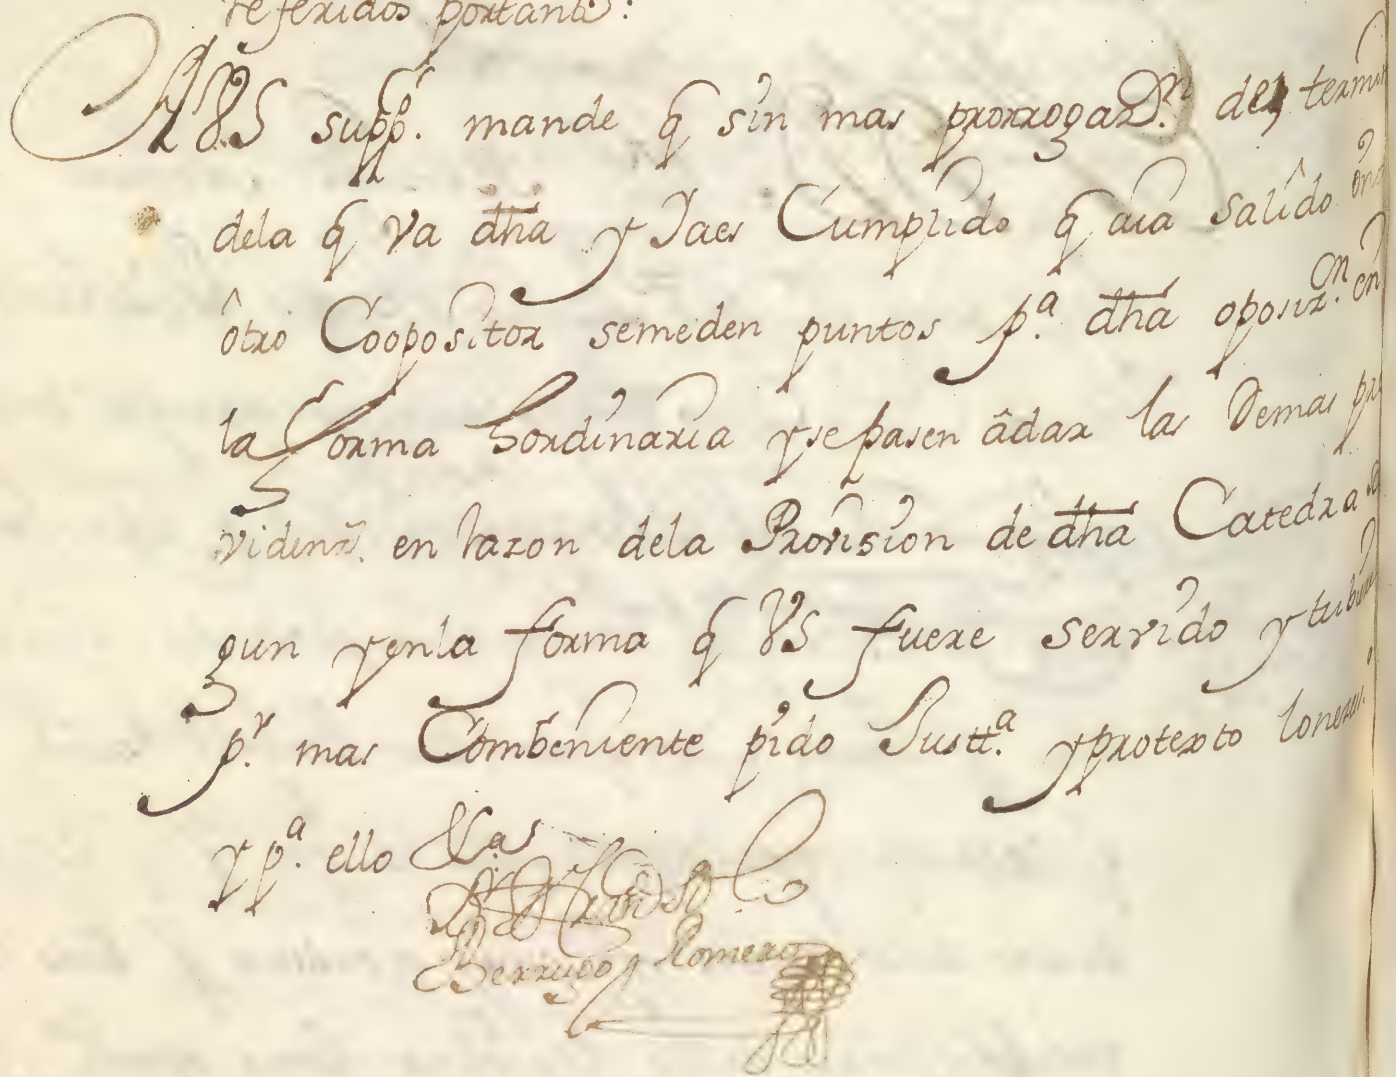 referidos portanto:
A VS supp.º mande q̃ sin mas prorrogaz.n del termi
dela q̃ va dh̄a y Jaes Cumplido q̃ aia salido
ôtro Coopositor semeden puntos p.ª dh̄a oposiz.on en
la forma hordinaria y se pasen âdar las Demas pr
videnz. en razon dela Provision de dh̄a Catedra
gun yenla forma q̃ VS fuere servido y tub
p.r mas Combeniente pido Justt.ª y protexto lo nezes.
y p.ª ello &.as
Berrugo y Romero